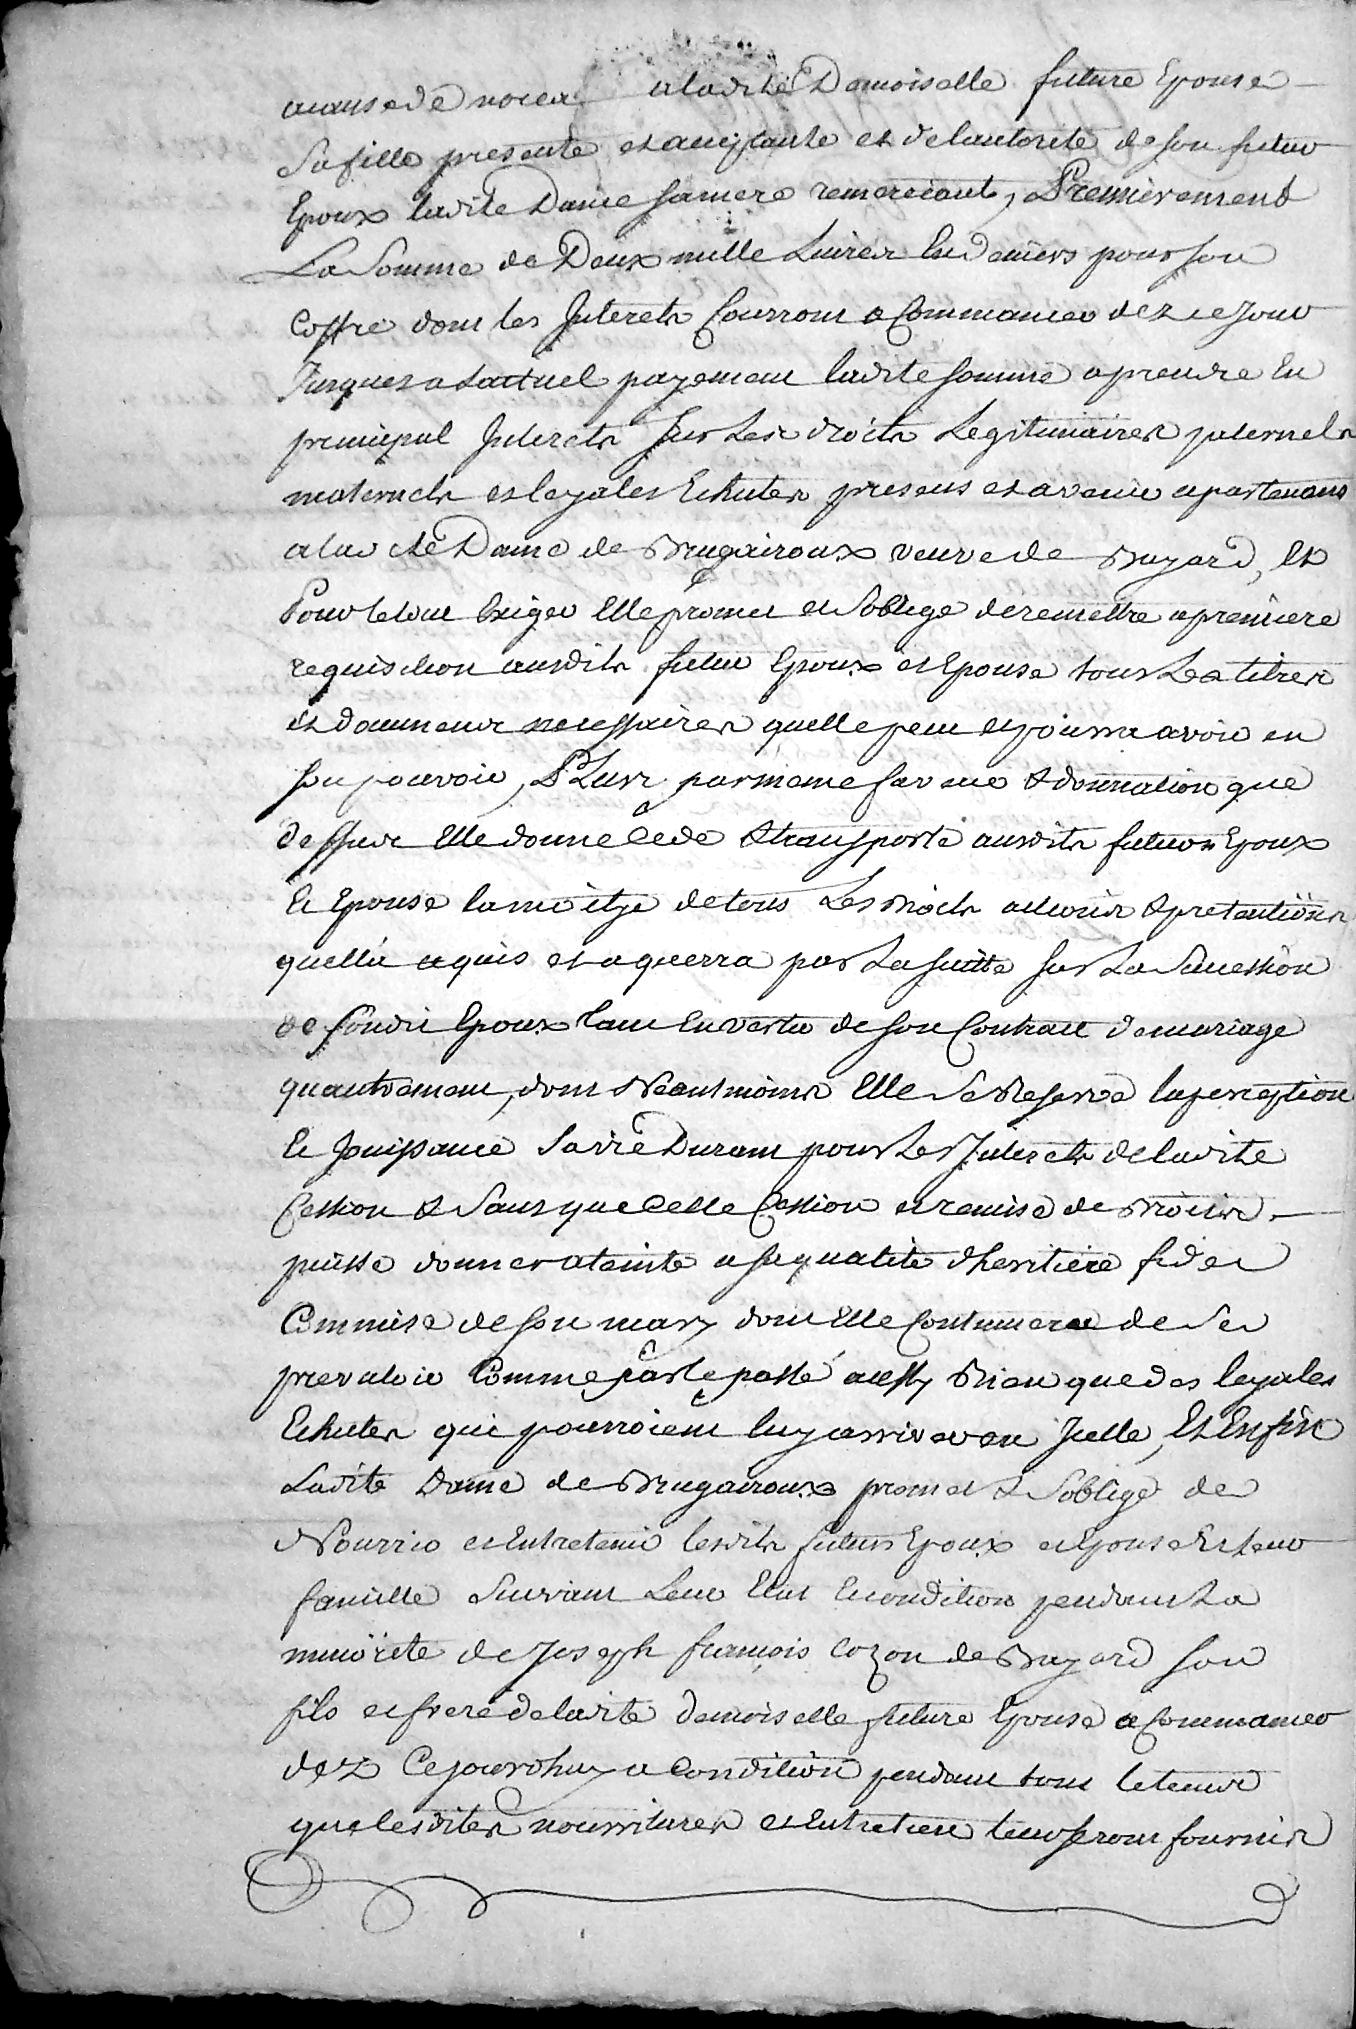 acause de noces a ladite Demoiselle future Epouse
Sa fille presente et aceptante et de lautorite de son futur
Epoux ladite Dame sa mere remerciant, Premierement
La Somme de Deux mille Livres En deniers pour son
Coffre dont les Interets Courront a Commancer dez ce Jour
Jusques a lactuel payement ladite somme a prendre En
principal Interets sur Les droits Legitimaires paternels
maternels et legales Echutes presens et avenir apartenans
a ladite Dame de Brugairoux veuve de Bayard, Et
Pour le tout Exiger Elle promet et Soblige de remettre a premiere
requisition ausdits futur Epoux et Epouse tous Les titres
et documents necessaires quelle peut et pourra avoir en
son pouvoir, Plus par meme faveur & donnation que
dessus Elle donne Cede & transporte ausdits futurs Epoux
Et Epouse la moitye de tous Les droits actions & pretentions
quella aquis et aquerra par La suitte sur La Succession
de sondit Epoux tant En vertu de son Contract de mariage
quautrement, dont Neantmoins Elle Se Reserve la perception
Et Jouissance Sa vie Durant pour Les Interets de ladite
Cession & Sans que Celle Cession et remise de droits
puisse donner atteinte a sa qualite dheritiere fidei
Commise de son mary dont Elle Continuera de Se
prevaloir Comme par le passé aussy Bien que des legales
Echutes qui pourroient luy arriver en Icelle, Et Enfin
Ladite Dame de Brugairoux promet & Soblige de
Nourrir et Entretenir lesdits futurs Epoux et Epouse Et leur
famille Suivant Leur Etat Et condition pendant La
minorite de Joseph françois Cozon de Bayard son
fils et frere de ladite demoiselle future Epouse a Commancer
dez Cejourdhuy a Condition pendant tout le temps
que lesdites nourritures et Entretien leur seront fournis